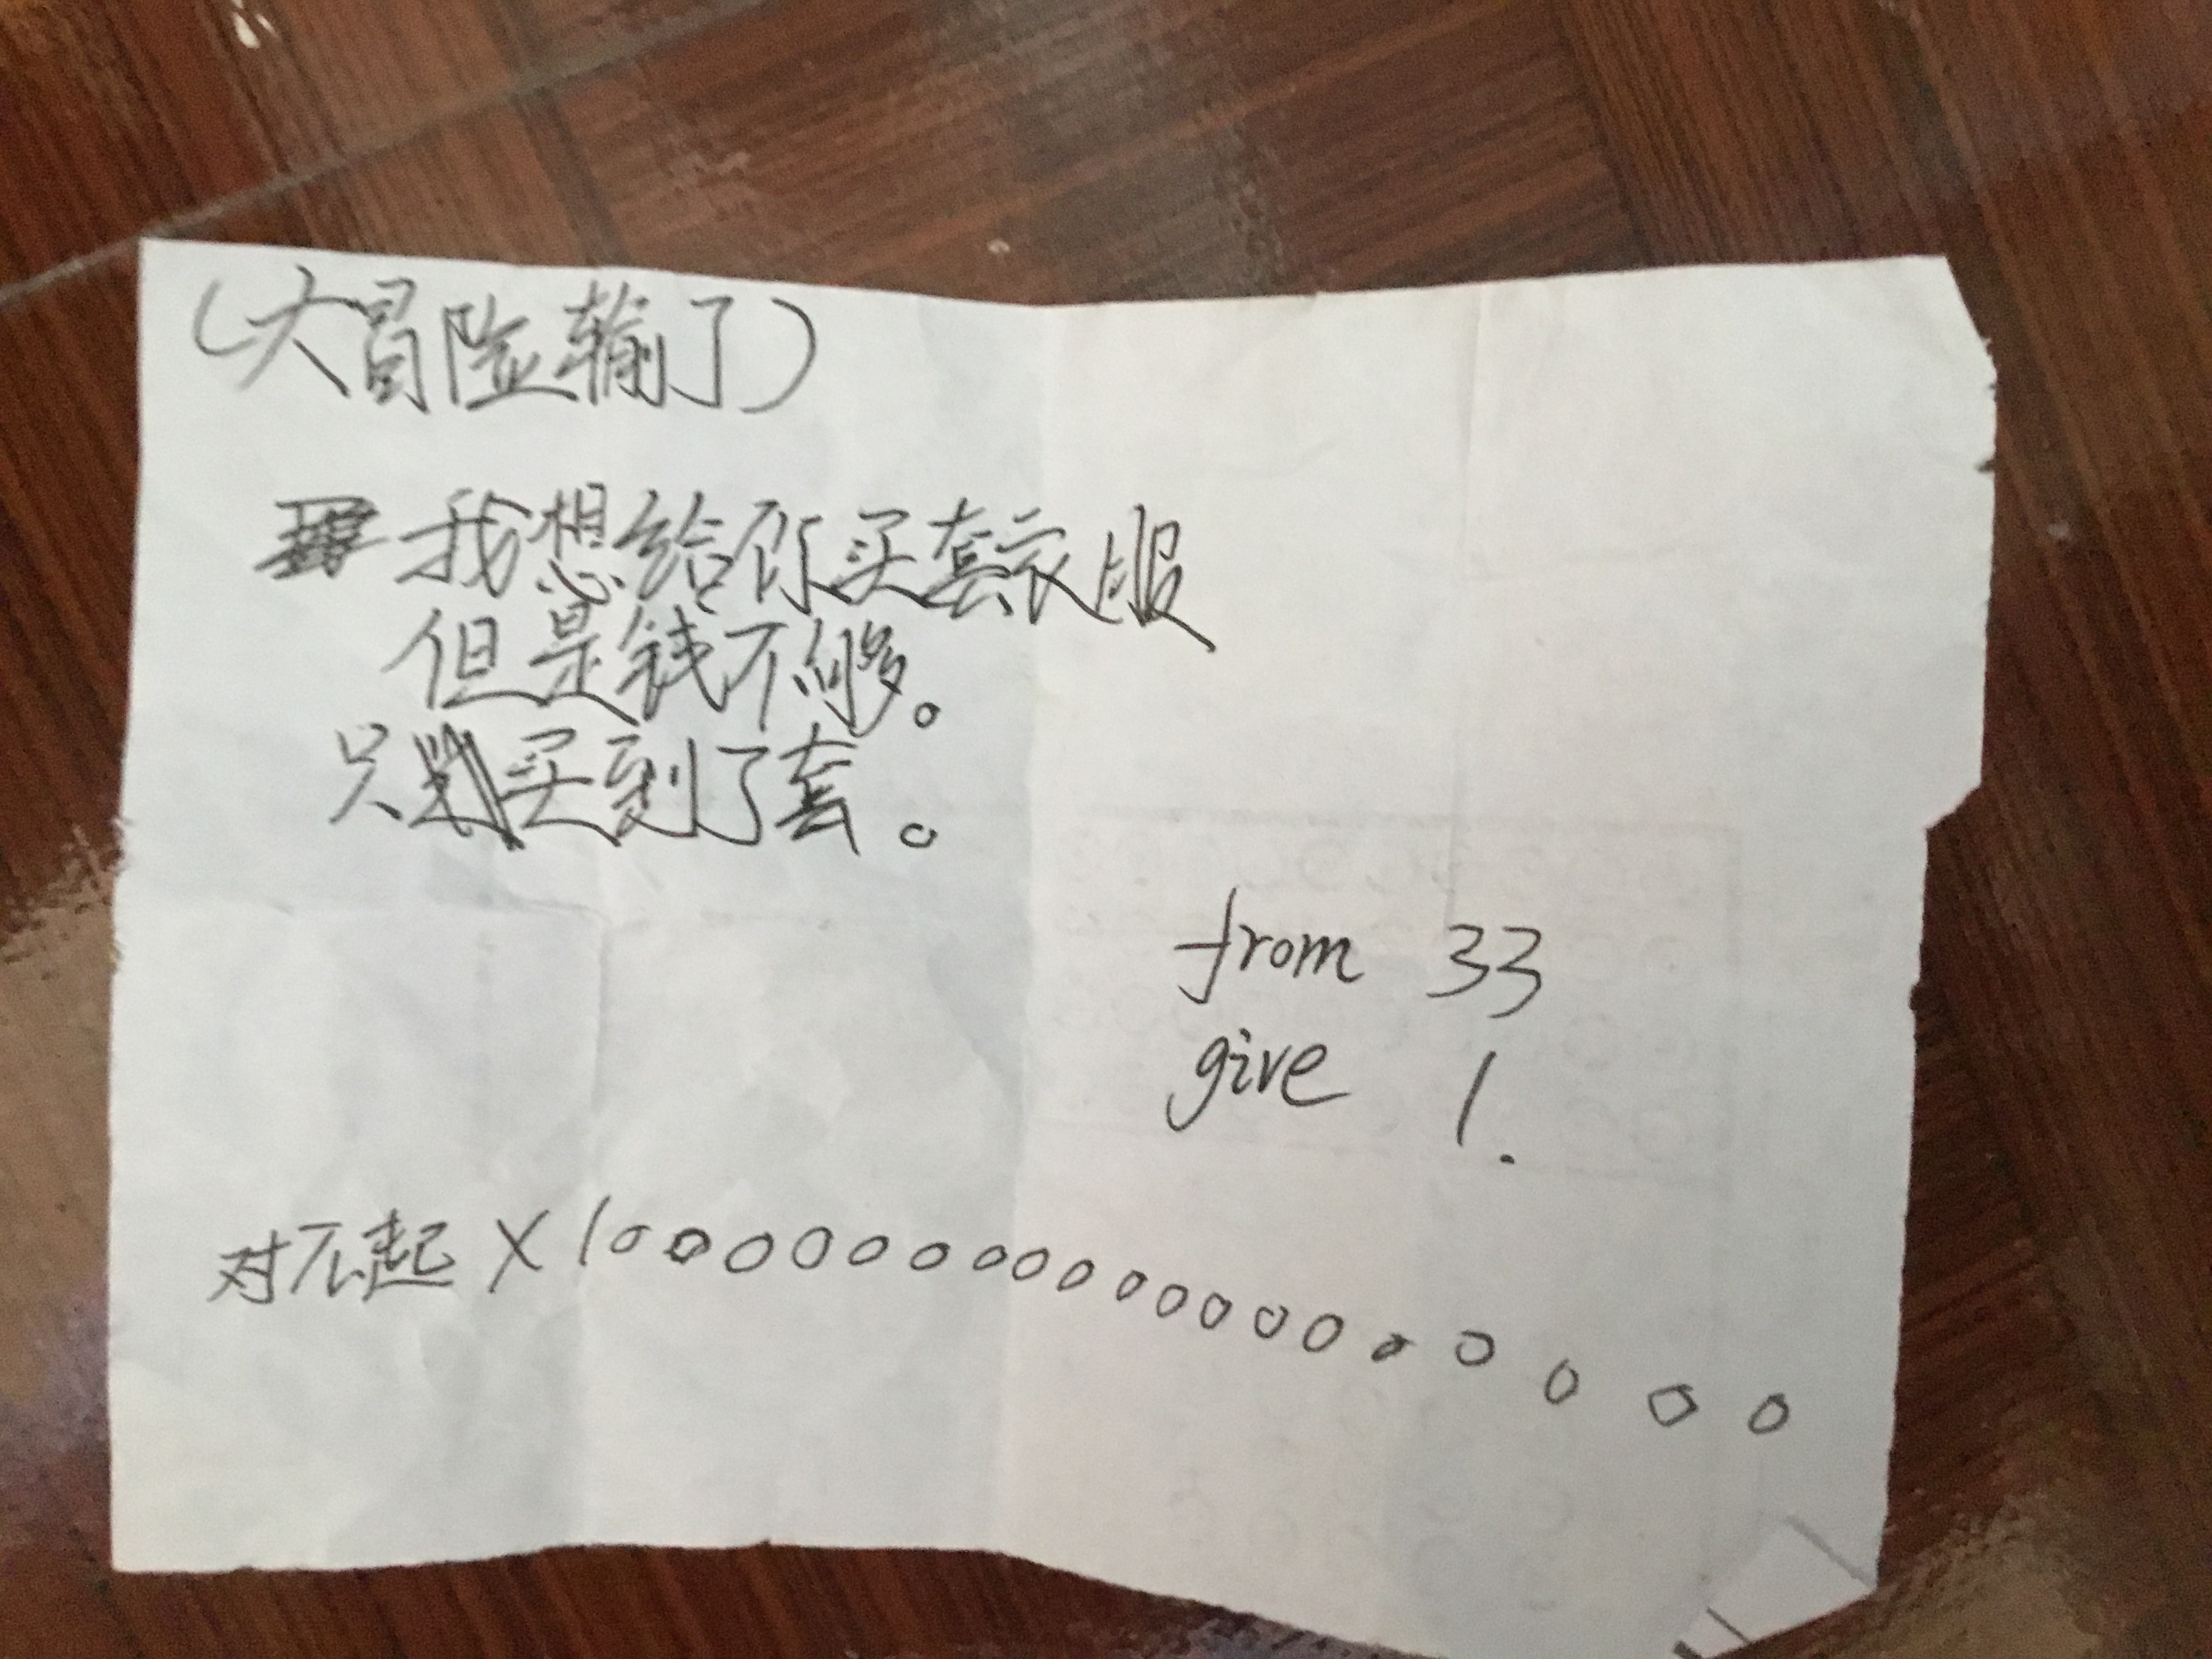 (大冒险输了)
我想给你买套衣服
但是钱不够。
只买到了套。
from 33
give 1.
对不起 X 10000000000000000000